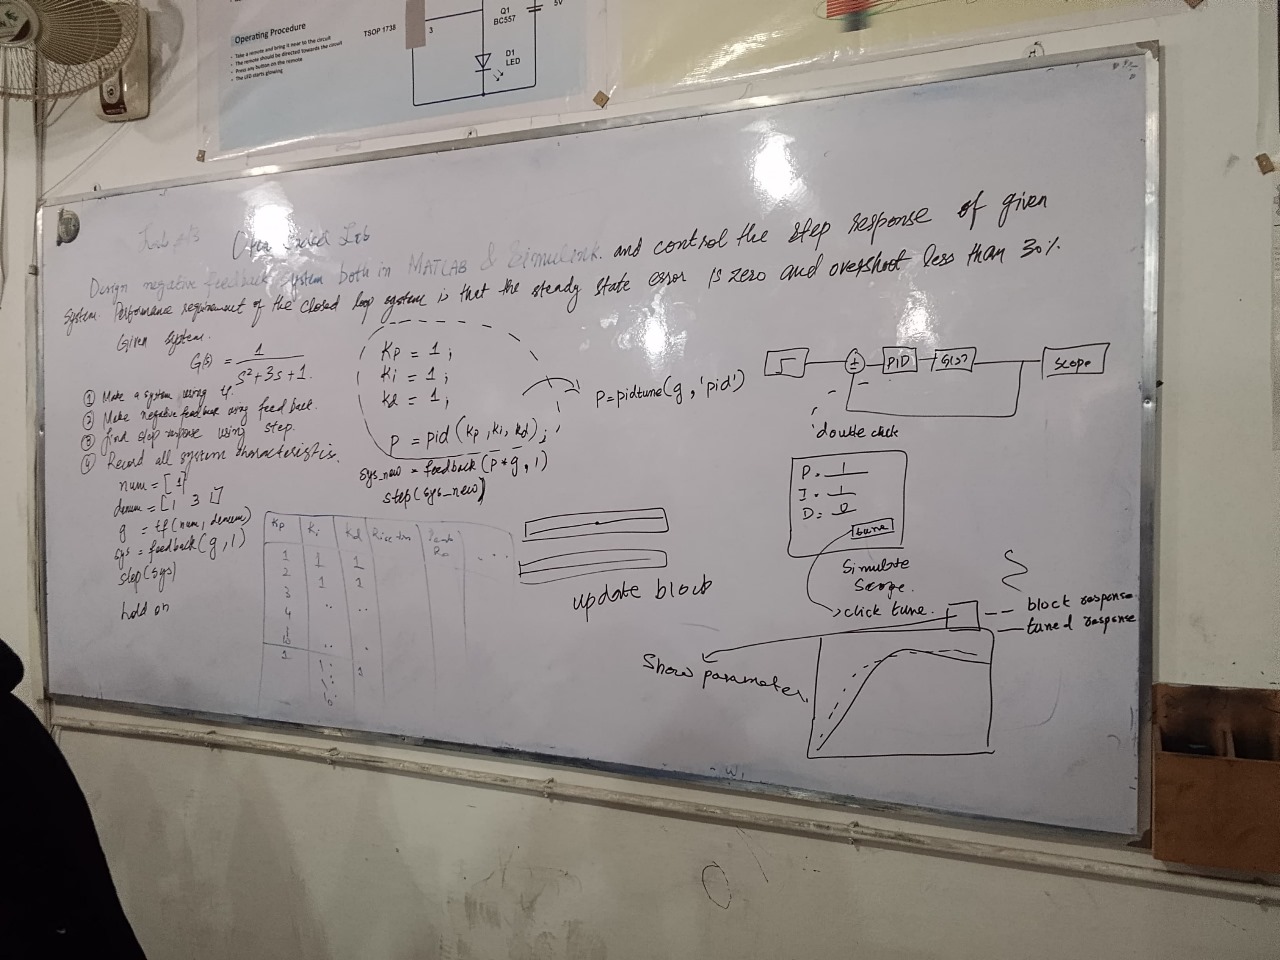 Operating Procedure
- Take a remote and bring it near to the circuit
- The remote should be directed towards the circuit
- Press any button on the remote
- The LED starts glowing
TSOP 1738
3
Q1
BC557
5V
D1
LED
Lab #13 Open Ended Lab
Design negative feedback system both in MATLAB & Simulink. and control the step response of given
system. Performance requirement of the closed loop system is that the steady state error is zero and overshoot less than 30%.
Given system.
G(s) = 1
s²+3s+1.
① Make a system using tf.
② Make negative feedback using feedback.
③ find step response using step.
④ Record all system characteristics.
num = [1]
denum = [1 3 1]
g = tf(num, denum)
sys = feedback(g, 1)
step(sys)
hold on
Kp = 1;
Ki = 1;
Kd = 1;
P = pid(Kp, Ki, Kd);
sys_new = feedback(P*g, 1)
step(sys_new)
P = pidtune(g, 'pid')
Kp Ki Kd
1 1 1
2 1 1
3
4
update block
± PID G(s) Scope
double click
P.
I.
D:
tune
Simulate
Scope.
click tune.
-- block response
— tuned response
Show parameter.